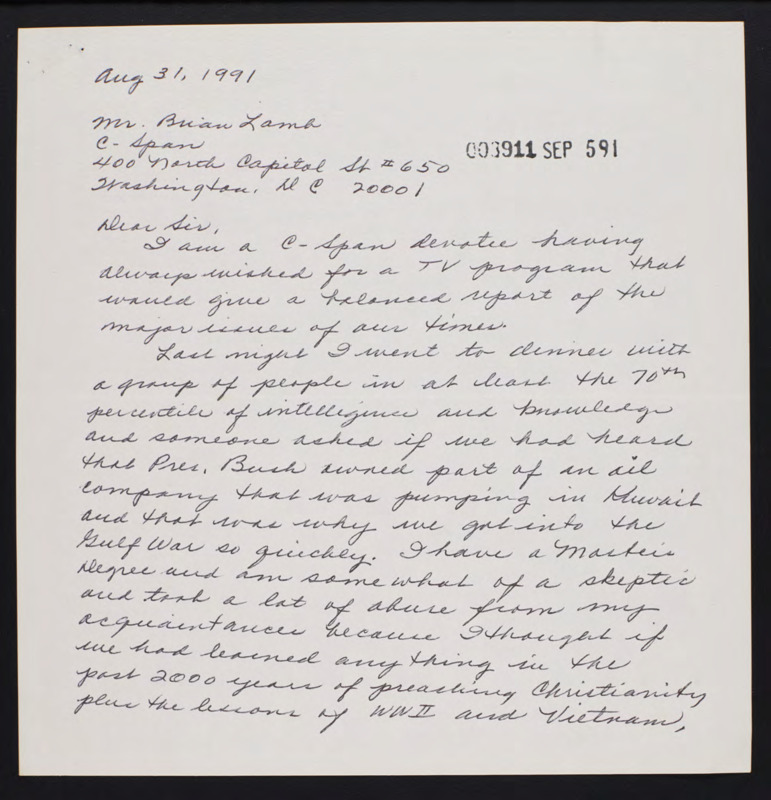 Aug 31, 1991
Mr. Brian Lamb
C-Span
400 North Capitol St #650
003911 SEP 591
Washington, D C 20001
Dear Sir,
I am a C-Span devotee having
always wished for a TV program that
would give a balanced report of the
major issues of our times.
Last night I went to dinner with
a group of people in at least the 70th
percentile of intelligence and knowledge
and someone asked if we had heard
that Pres. Bush owned part of an oil
company that was pumping in Kuwait
and that was why we got into the
Gulf War so quickly. I have a Masters
Degree and am somewhat of a skeptic
and took a lot of abuse from my
acquaintances because I thought if
we had learned any thing in the
past 2000 years of preaching Christianity
plus the lessons of WWII and Vietnam,